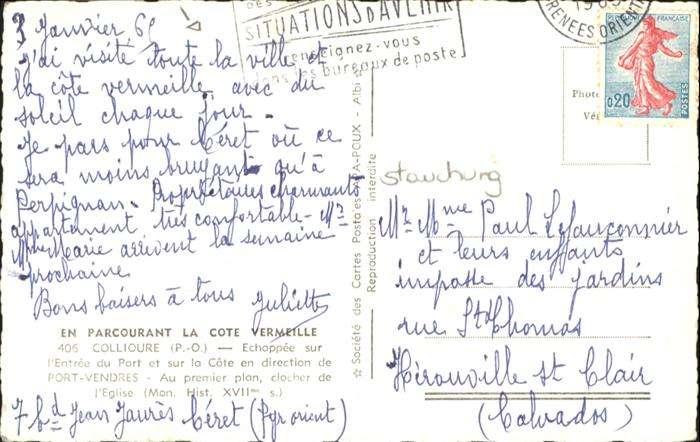 3 Janvier 65
J'ai visité toute la ville et
la côte vermeille avec du
soleil chaque jour.
Je pars pour Céret où ce
sera moins bruyant qu'à
Perpignan. Propriétaires charmants
appartement très confortable - Mr
Marie arrivent la semaine
prochaine
Bons baisers à tous Juliette
EN PARCOURANT LA COTE VERMEILLE
405 COLLIOURE (P.-O.) — Echappée sur
l'Entrée du Port et sur la Côte en direction de
PORT-VENDRES - Au premier plan, clocher de
l'Eglise (Mon. Hist. XVIIme s.)
7 bd Jean Jaurès Céret (Pyr orient)
SITUATIONS D'AVENIR
renseignez-vous
dans les bureaux de poste
PYRENEES ORIENT
REPUBLIQUE FRANÇAISE
0,20
POSTES
Photo
Vér
☆ Société des Cartes Postales APA-POUX - Albi ☆
Reproduction interdite
Mr Mme Paul Lefauconnier
et leurs enfants
impasse des jardins
rue St Thomas
Hérouville St Clair
(Calvados)